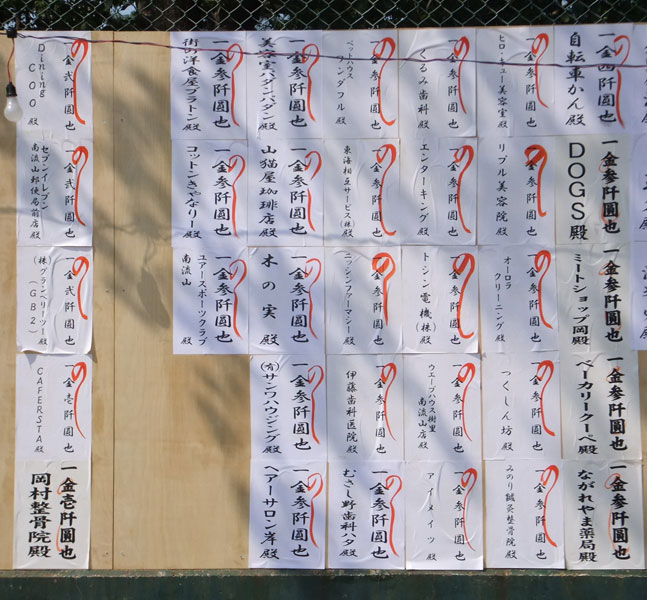 一金四阡圓也
自転車かん殿
一金参阡圓也
ヒロ・キュー美容室殿
一金参阡圓也
くるみ歯科殿
一金参阡圓也
ペットハウス
ワンダフル殿
一金参阡圓也
美容室パダンパダン殿
一金参阡圓也
街の洋食屋プラトン殿
一金弐阡圓也
Dining
COO殿
一金参阡圓也
DOGS殿
一金参阡圓也
リブル美容院殿
一金参阡圓也
エンターキング殿
一金参阡圓也
東海相互サービス(株)殿
一金参阡圓也
山猫屋珈琲店殿
一金参阡圓也
コットンきゃなりー殿
一金弐阡圓也
セブンイレブン
南流山郵便局前店殿
一金参阡圓也
ミートショップ岡殿
一金参阡圓也
オーロラ
クリーニング殿
一金参阡圓也
トシン電機(株)殿
一金参阡圓也
ニッシンファーマシー殿
一金参阡圓也
木の実殿
一金参阡圓也
ユアースポーツクラブ
南流山殿
一金弐阡圓也
(株)グランベリーツー
(GB2)殿
一金参阡圓也
ベーカリークーペ殿
一金参阡圓也
つくしん坊殿
一金参阡圓也
ウエーブハウス樹里
南流山店殿
一金参阡圓也
伊藤歯科医院殿
一金参阡圓也
(有)サンワハウジング殿
一金壱阡圓也
CAFERSTA殿
一金参阡圓也
ながれやま薬局殿
一金参阡圓也
みのり鍼灸整骨院殿
一金参阡圓也
アイメイツ殿
一金参阡圓也
むさし野歯科ハタ殿
一金参阡圓也
ヘアーサロン岸殿
一金壱阡圓也
岡村整骨院殿